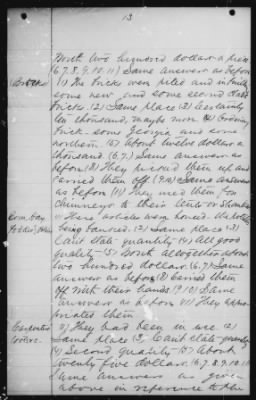 13
North two hundred dollars a piece
(6.7.8.9.10.11) Same answer as before
(Bricks) (1) The bricks were piled and in
some new and some second hand
bricks. (2) Same place (3) Certainly
ten thousand, maybe more (4) Ordinary
brick - some Georgia and some
northern (5) About twelve dollars a
thousand (6.7.) Same answer as
before (8) They picked them up and
carried them off (9.10) Same answer
as before (11) They used them, for
chimneys to their tents or Shanties
(1) These articles were housed
being canvased. (2) Same place (3)
Cant state quantity (4) All good
quality - (5) Worth altogether about
two hundred dollars. (6.7) Same
answer as before (8) Carried them
off with their hands (9.10) Same
answer as before (11) They appro-
priated them
Carpenters (1) They had been in use (2)
Same place (3) Cant state quantity
(4) Second quality (5) About
twenty five dollars. (6.7.8.9.10.11)
Same answer as given
above in reference to the